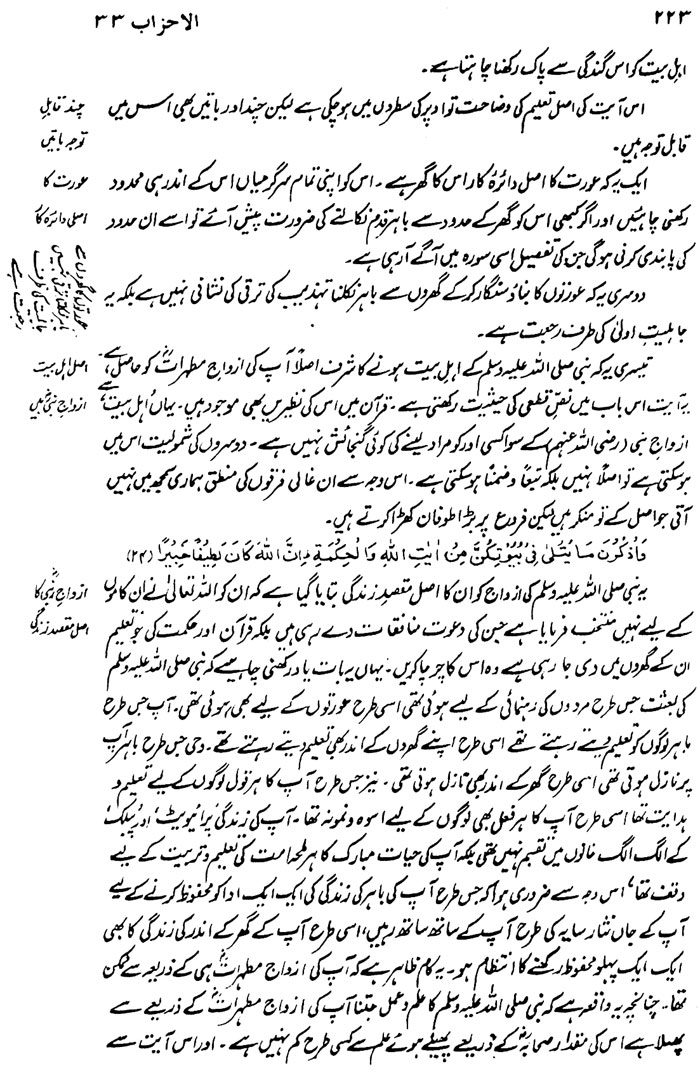 ۲۲۳
الاحزاب ۳۳
اہلِ بیت کو اس گندگی سے پاک رکھنا چاہتا ہے۔
اس آیت کی اصل تعلیم کی وضاحت تو اوپر کی سطروں میں ہو چکی ہے لیکن چند اور باتیں بھی اس میں
چند قابلِ
قابل توجہ ہیں۔
توجہ باتیں
ایک یہ کہ عورت کا اصل دائرۂ کار اس کا گھر ہے۔ اس کو اپنی تمام سرگرمیاں اس کے اندر ہی محدود
عورت کا
رکھنی چاہئیں اور اگر کبھی اس کو گھر کے حدود سے باہر قدم نکالنے کی ضرورت پیش آئے تو اسے ان حدود
اصلی دائرہ کار
کی پابندی کرنی ہو گی جن کی تفصیل اسی سورہ میں آگے آ رہی ہے۔
عورتوں کا گھروں سے
باہر نکلنا ترقی نہیں
جاہلیت کی طرف
رجعت ہے
دوسری یہ کہ عورتوں کا بناؤ سنگار کر کے گھروں سے باہر نکلنا تہذیب کی ترقی کی نشانی نہیں ہے بلکہ یہ
جاہلیتِ اولیٰ کی طرف رجعت ہے۔
تیسری یہ کہ نبی صلی اللہ علیہ وسلم کے اہلِ بیت ہونے کا شرف اصلاً آپ کی ازواجِ مطہراتؓ کو حاصل ہے۔
اصل اہل بیت
یہ آیت اس باب میں نصِ قطعی کی حیثیت رکھتی ہے۔ قرآن میں اس کی نظیریں بھی موجود ہیں۔ یہاں ’اہل بیت‘ سے
ازواجِ نبیؐ ہیں
ازواجِ نبی (رضی اللہ عنہم) کے سوا کسی اور کو مراد لینے کی کوئی گنجائش نہیں ہے۔ دوسروں کی شمولیت اس میں
ہو سکتی ہے تو اصلاً نہیں بلکہ تبعاً و ضمناً ہو سکتی ہے۔ اس وجہ سے ان غالی فرقوں کی منطق ہماری سمجھ میں نہیں
آتی جو اصل کے تو منکر ہیں لیکن فروع پر بڑا طوفان کھڑا کرتے ہیں۔
وَاذْكُرْنَ مَا يُتْلٰى فِيْ بُيُوْتِكُنَّ مِنْ اٰيٰتِ اللّٰهِ وَالْحِكْمَةِ اِنَّ اللّٰهَ كَانَ لَطِيْفًا خَبِيْرًا (۳۴)
یہ نبی صلی اللہ علیہ وسلم کی ازواج کو ان کا اصل مقصدِ زندگی بتایا گیا ہے کہ ان کو اللہ تعالیٰ نے ان کاموں
ازواجِ نبیؐ کا
کے لیے نہیں منتخب فرمایا ہے جن کی دعوت منافقات دے رہی ہیں بلکہ قرآن اور حکمت کی جو تعلیم
اصل مقصدِ زندگی
ان کے گھروں میں دی جا رہی ہے وہ اس کا چرچا کریں۔ یہاں یہ بات یاد رکھنی چاہیے کہ نبی صلی اللہ علیہ وسلم
کی بعثت جس طرح مردوں کی رہنمائی کے لیے ہوئی تھی اسی طرح عورتوں کے لیے بھی ہوئی تھی۔ آپ جس طرح
باہر لوگوں کو تعلیم دیتے رہتے تھے اسی طرح اپنے گھروں کے اندر بھی تعلیم دیتے رہتے تھے۔ وحی جس طرح باہر آپ
پر نازل ہوتی تھی اسی طرح گھر کے اندر بھی نازل ہوتی تھی۔ نیز جس طرح آپ کا ہر قول لوگوں کے لیے تعلیم و
ہدایت تھا اسی طرح آپ کا ہر فعل بھی لوگوں کے لیے اسوہ و نمونہ تھا۔ آپ کی زندگی ’پرائیویٹ‘ اور ’پبلک‘
کے الگ الگ خانوں میں تقسیم نہیں تھی بلکہ آپ کی حیات مبارک کا ہر لمحہ امت کی تعلیم و تربیت کے لیے
وقف تھا، اس وجہ سے ضروری ہوا کہ جس طرح آپ کی باہر کی زندگی کی ایک ایک ادا کو محفوظ کرنے کے لیے
آپ کے جاں نثار سایہ کی طرح آپ کے ساتھ ساتھ رہیں، اسی طرح آپ کے گھر کے اندر کی زندگی کا بھی
ایک ایک پہلو محفوظ رکھنے کا انتظام ہو۔ یہ کام ظاہر ہے کہ آپ کی ازواج مطہراتؓ ہی کے ذریعہ سے ممکن
تھا۔ چنانچہ یہ واقعہ ہے کہ نبی صلی اللہ علیہ وسلم کا علم و عمل جتنا آپ کی ازواج مطہراتؓ کے ذریعے سے
پھیلا ہے اس کی مقدار صحابہؓ کے ذریعے پھیلے ہوئے علم سے کسی طرح کم نہیں ہے۔ اور اس آیت سے